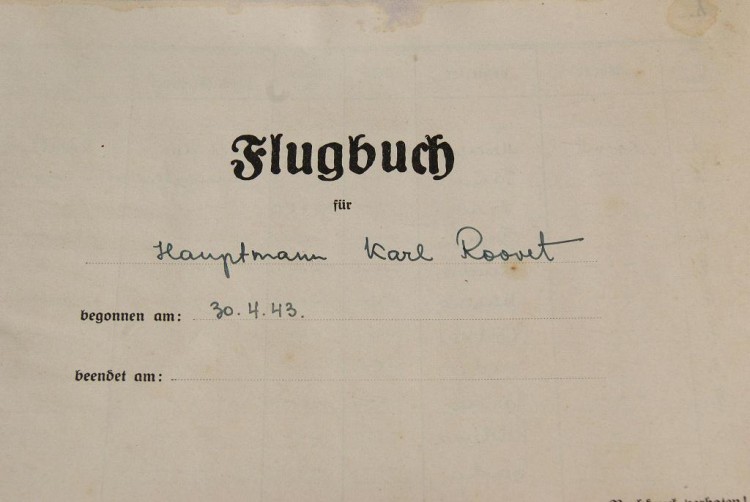 Flugbuch
für
Hauptmann Karl Roovet
begonnen am: 30.4.43.
beendet am: